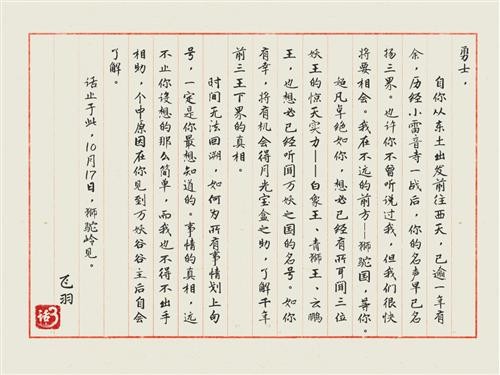 勇士，
自你从东土出发前往西天，已逾一年有
余，历经小雷音寺一战后，你的名声早已名
扬三界。也许你不曾听说过我，但我们很快
将要相会。我在不远的前方——狮驼国，等你。
超凡卓绝如你，想必已经有所耳闻三位
妖王的惊天实力——白象王、青狮王、云鹏
王，也想必已经听闻万妖之国的名号。如你
有幸，将有机会得月光宝盒之助，了解千年
前三王下界的真相。
时间无法回溯，如何为所有事情划上句
号，一定是你最想知道的。事情的真相，远
不止你设想的那么简单，而我也不得不出手
相助，个中原因在你见到万妖谷谷主后自会
了解。
话止于此，10月17日，狮驼岭见。
飞羽